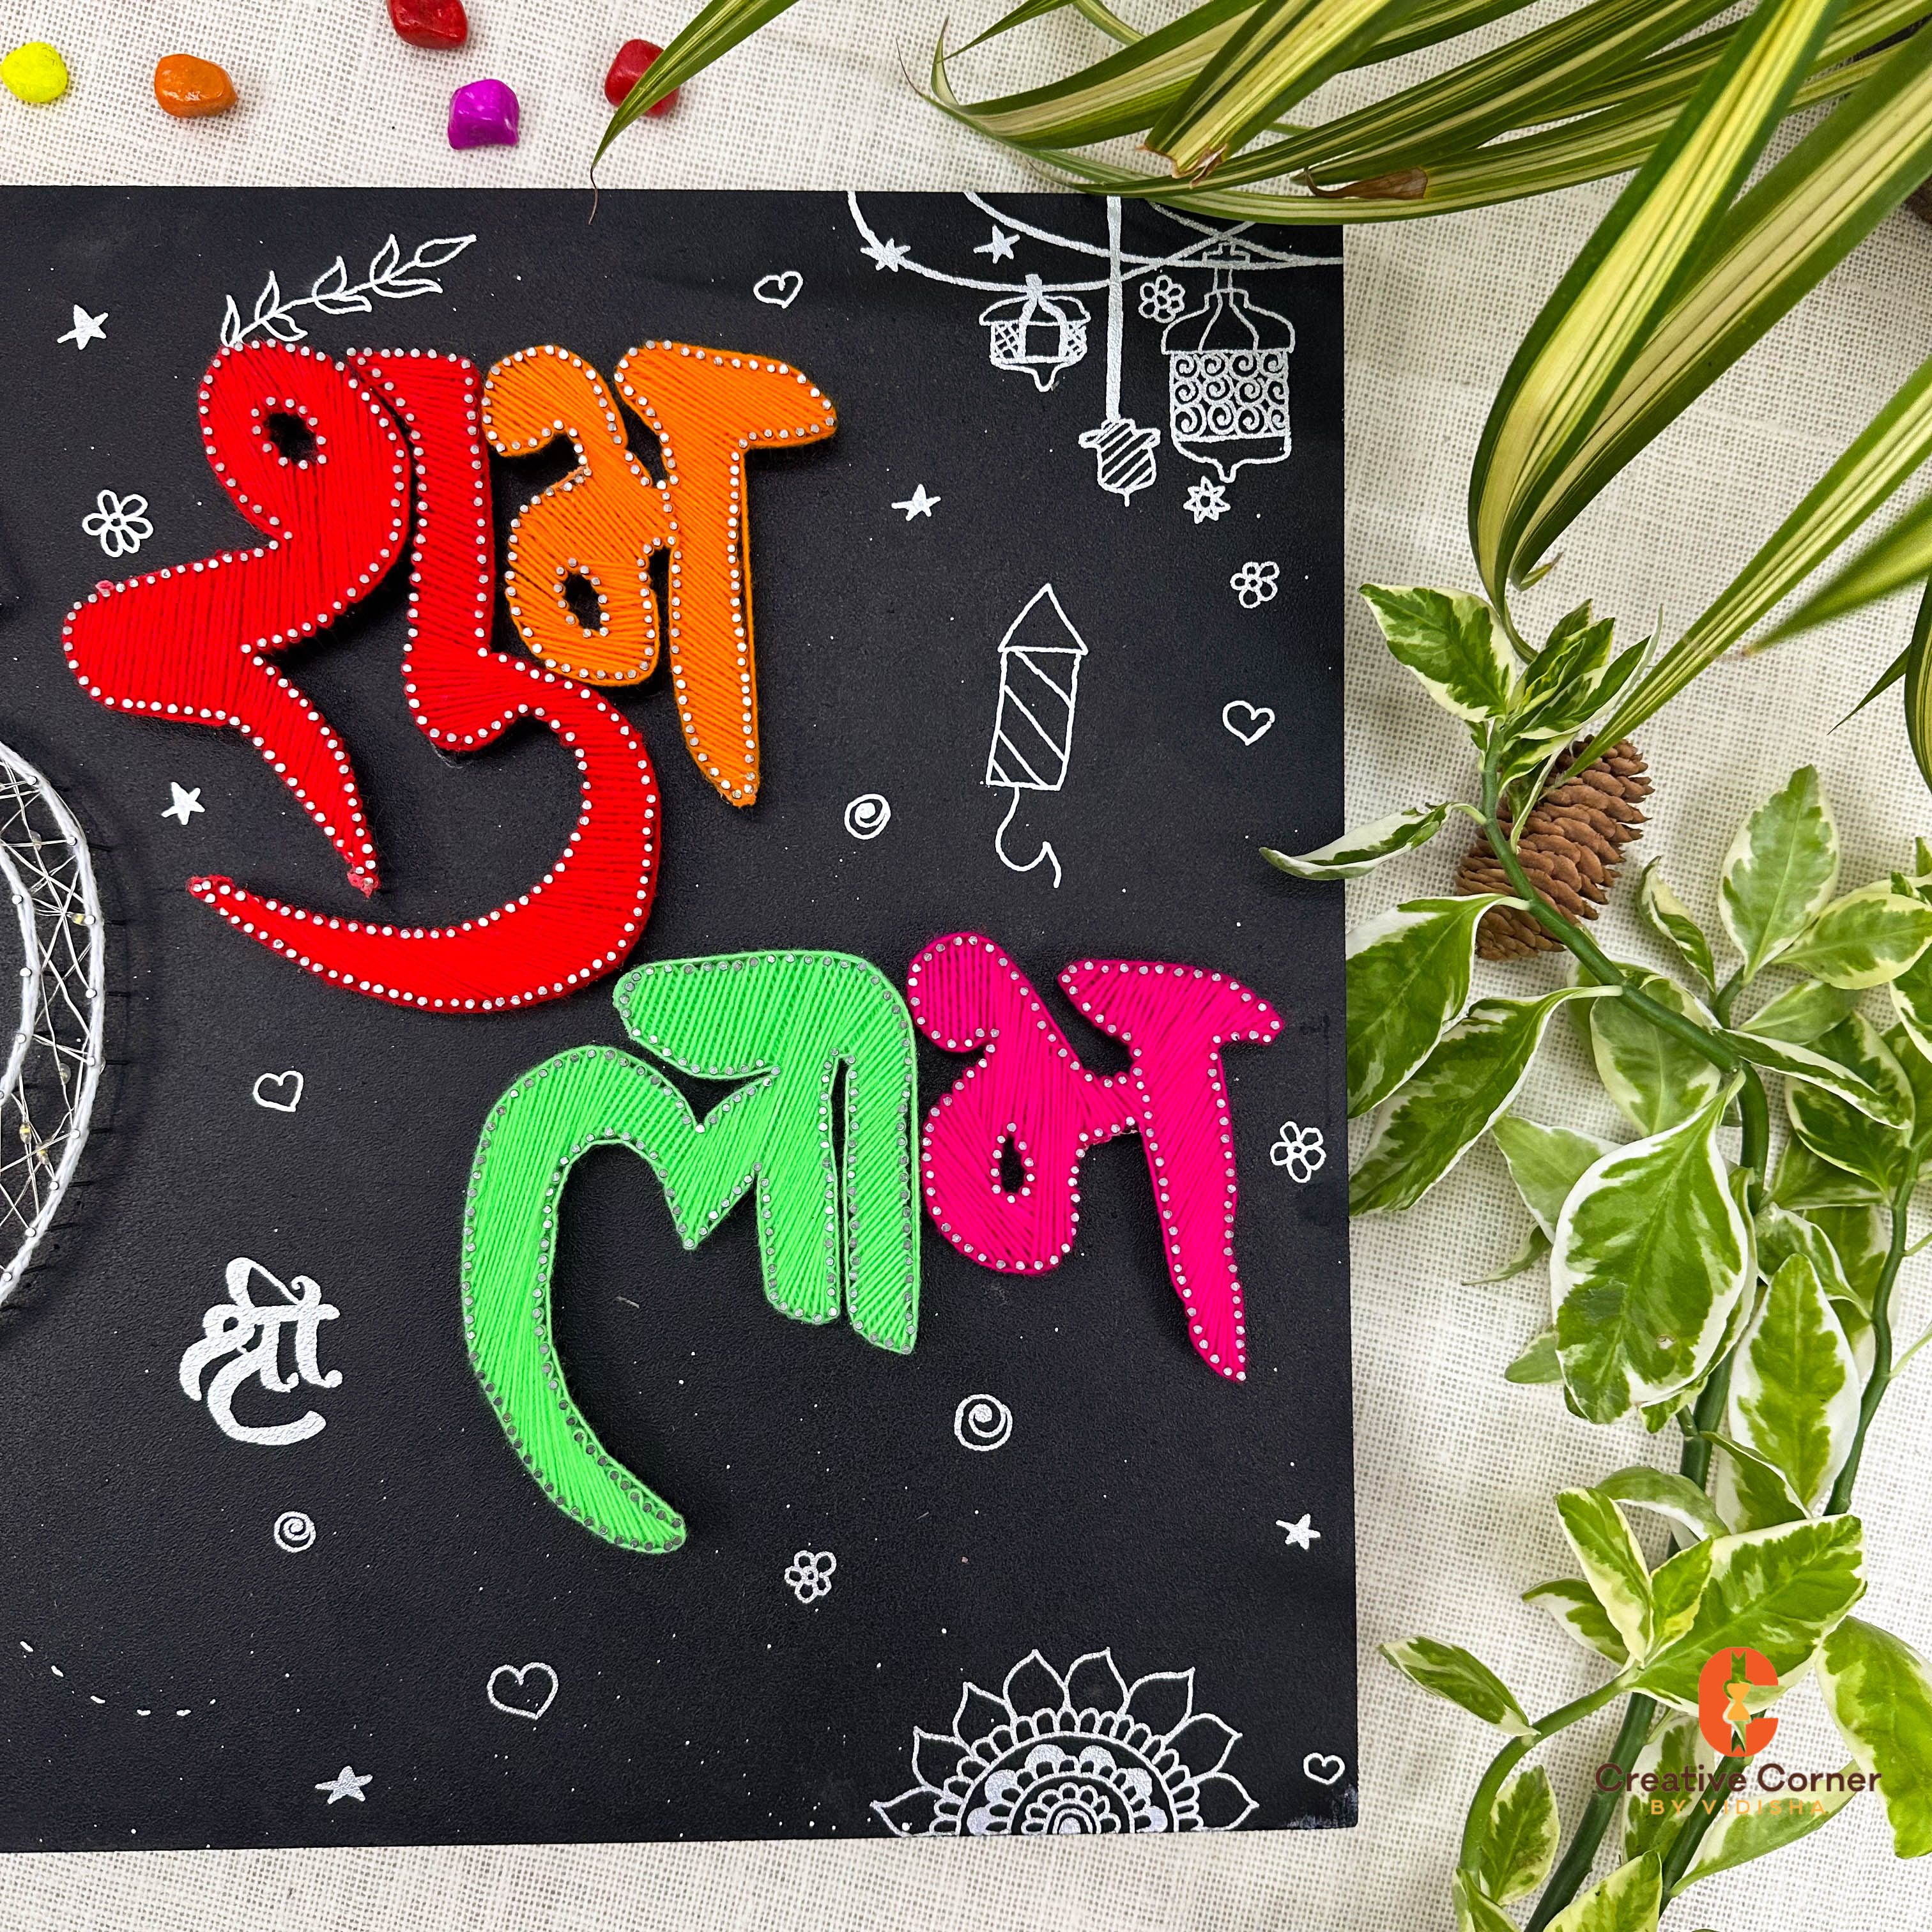 शुभ
लाभ
श्री
Creative Corner
BY VIDISHA